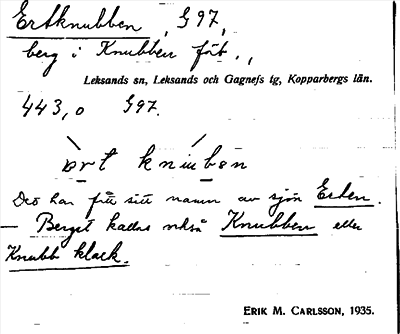 Ertknubben, G 97,
berg i Knubben föt.,
Leksands sn, Leksands och Gagnefs tg, Kopparbergs län.
443,0 G 97.
knubən
Det har fått sitt namn av sjön Erten.
— Berget kallas också Knubben eller
Knubb klack.
ERIK M. CARLSSON, 1935.